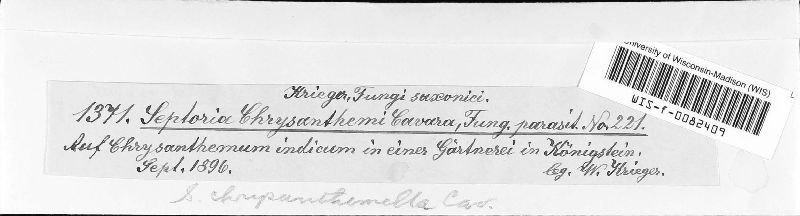 Krieger, Fungi saxonici.
1371. Septoria Chrysanthemi Cavara, Fung. parasit. No. 221.
Auf Chrysanthemum indicum in einer Gärtnerei in Königstein.
Sept. 1896. leg. W. Krieger.
S. chrysanthemella Cav.
University of Wisconsin-Madison (WIS)
WIS-f-0082409